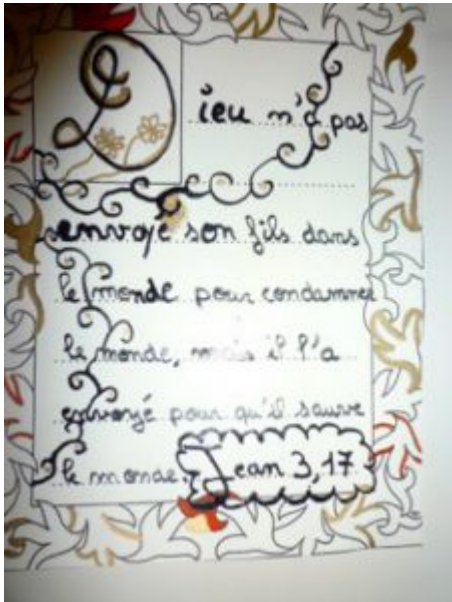 Dieu n'a pas
envoyé son fils dans
le monde pour condamner
le monde, mais il l'a
envoyé pour qu'il sauve
le monde.
Jean 3,17